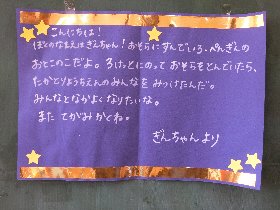 こんにちは!
ぼくのなまえはぎんちゃん!おそらにすんでいる、ぺんぎんの
おとこのこだよ。ろけっとにのって おそらをとんでいたら、
たかとりようちえんのみんなを みつけたんだ。
みんなとなかよくなりたいな。
また てがみかくね。
ぎんちゃんより